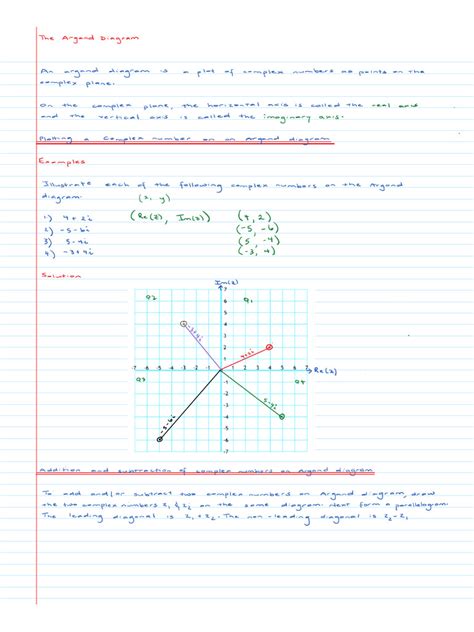 The Argand Diagram
An argand diagram is a plot of complex numbers as points on the
complex plane.
On the complex plane, the horizontal axis is called the real axis
and the vertical axis is called the imaginary axis.
Plotting a Complex number on an Argand diagram
Examples
Illustrate each of the following complex numbers on the Argand
diagram. (x, y)
1) 4+2i (Re(z), Im(z)) (4, 2)
2) -5-6i (-5, -6)
3) 5-4i (5, -4)
4) -3+4i (-3, 4)
Solution
Im(z)
7
Q2 Q1
6
5
4
3
-3+4i
2
4+2i
1
-7 -6 -5 -4 -3 -2 -1 0 1 2 3 4 5 6 7 Re(z)
Q3 Q4
-1
-2
-3
5-4i
-4
-5-6i
-5
-6
-7
Addition and subtraction of complex numbers on Argand diagram
To add and/or subtract two complex numbers on Argand diagram, draw
the two complex numbers z₁ & z₂ on the same diagram. Next form a parallelogram.
The leading diagonal is z₁ + z₂. The non-leading diagonal is z₂ - z₁